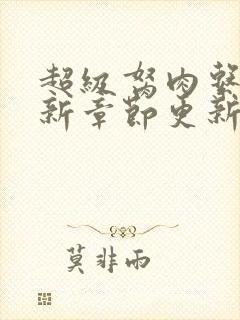 超级驽肉系
新章节更新
莫非雨